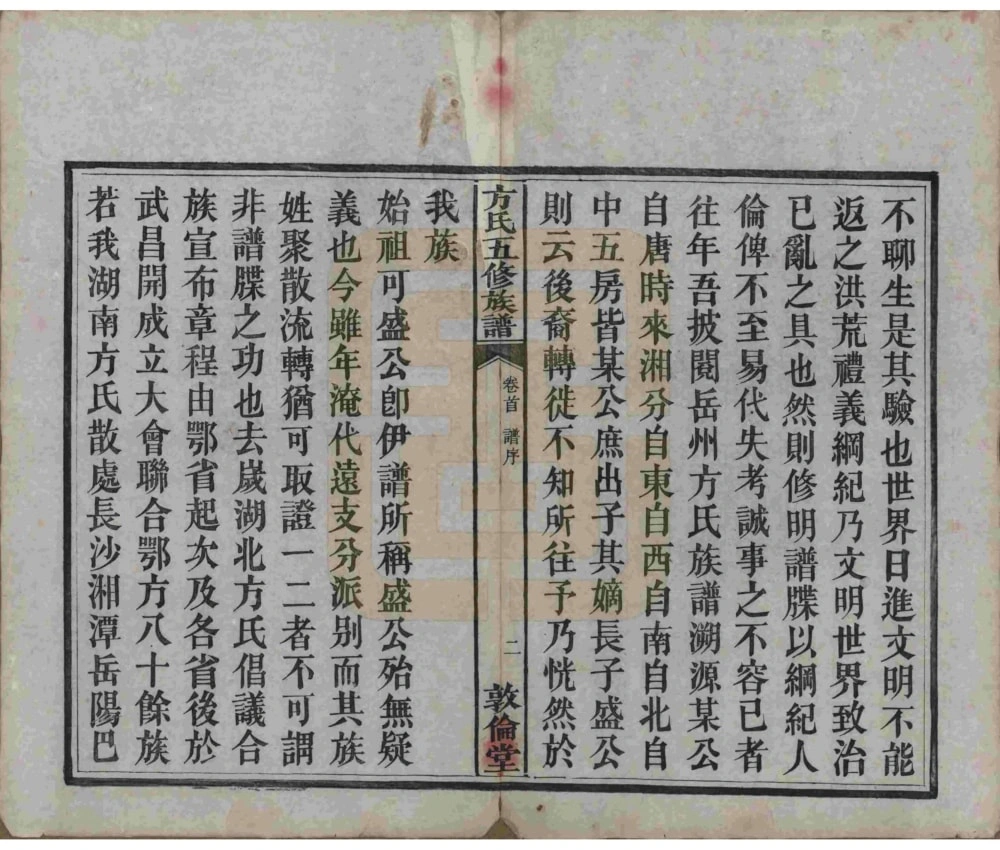 不聊生是其驗也世界日進文明不能
返之洪荒禮義綱紀乃文明世界致治
已亂之具也然則修明譜牒以綱紀人
倫俾不至易代失考誠事之不容已者
往年吾披閱岳州方氏族譜溯源某公
自唐時來湘分自東自西自南自北自
中五房皆某公庶出子其嫡長子盛公
則云後裔轉徙不知所往予乃恍然於
方氏五修族譜
卷首 譜序
二
敦倫堂
我族
始祖可盛公卽伊譜所稱盛公殆無疑
義也今雖年淹代遠支分派别而其族
姓聚散流轉猶可取證一二者不可謂
非譜牒之功也去嵗湖北方氏倡議合
族宣布章程由鄂省起次及各省後於
武昌開成立大會聯合鄂方八十餘族
若我湖南方氏散處長沙湘潭岳陽巴